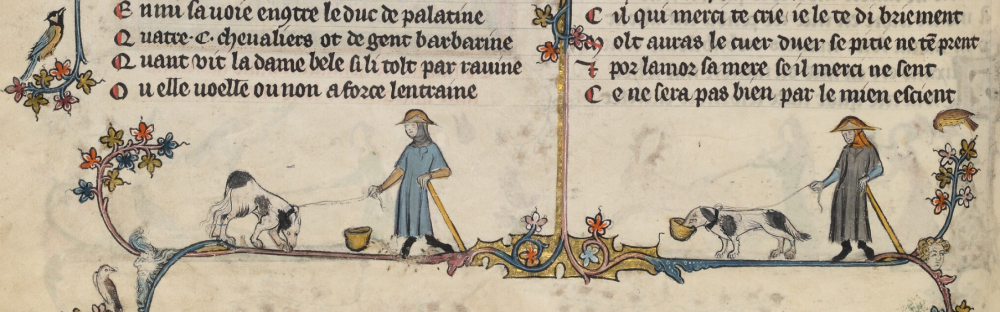 E nmi sa uoie en9tre le duc de palatine
Q uatre .C. cheualiers ot de gent barbarine
Q uant vit la dame bele si li tolt par rauine
O u elle uoelle ou non a force lentraine
C il qui merci te crie ie le te di briement
olt auras le cuer duer se pitie ne tē prent
⁊ por lamor sa mere se il merci ne sent
C e ne sera pas bien par le mien escient